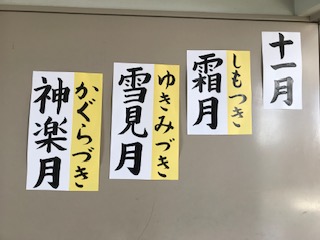 十一月
しもつき
霜月
ゆきみづき
雪見月
かぐらづき
神楽月